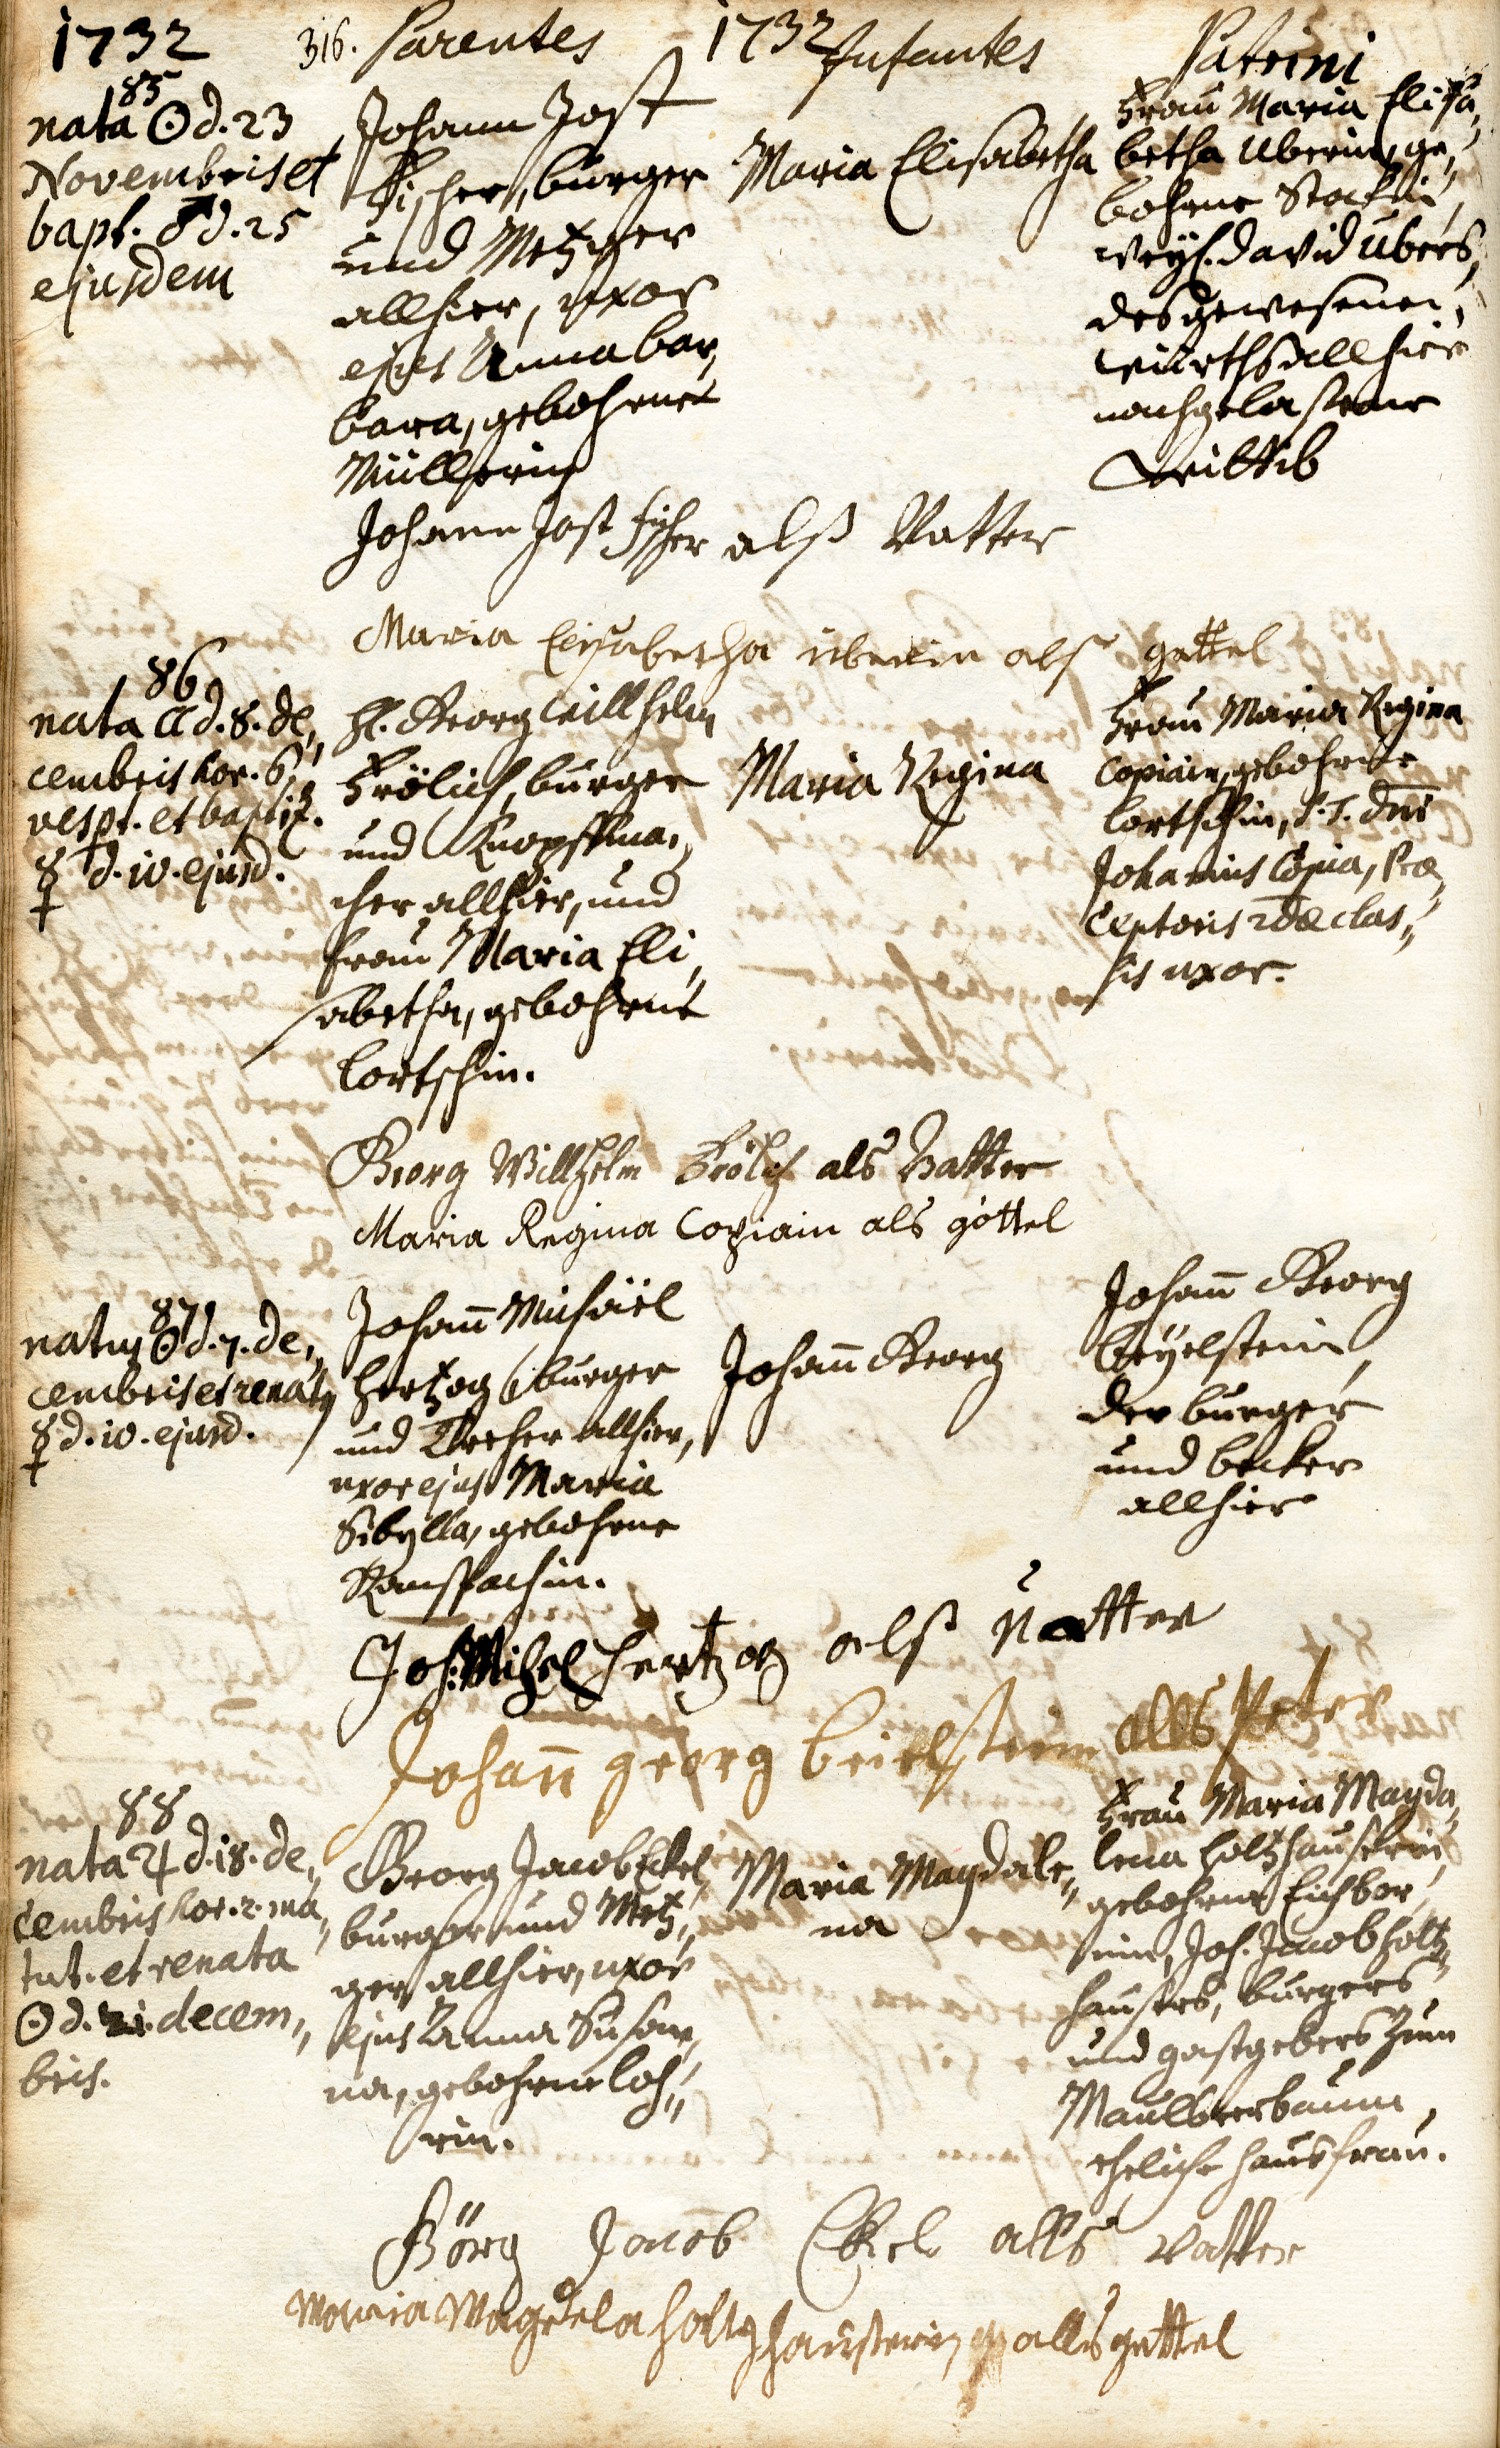 1732 316. Parentes 1732 Infantes Patrini
85
nata ☉ d. 23
Novembris et
bapt. ♂ d. 25
ejusdem
Johann Jost
Fischer, burger
und Metzger
allhier, uxor
ejus Anna Bar,,
bara, gebohrne
Müllerin
Maria Elisabetha
Frau Maria Elisa,,
betha Uberin, ge,,
bohrne
weyl. David Ubers,
des gewesenen
wirths allhier
nachgelassene
Wittib
Johann Jost Fischer alß Vatter
Maria Elisabetha überin alß gettel
86
nata ☾ d. 8. de,,
cembris hor. 6
vesp. et baptiz.
☿ d. 10. ejusd.
H. Georg Willhelm
Frölich, burger
und Knopffma,,
cher allhier, und
frau Maria Eli,,
sabetha, gebohrne
Lortschin.
Maria Regina
Frau Maria Regina
Copiain, gebohrne
Lortschin, P. T. dni
Johannis Copia, Præ,,
ceptoris 2dæ clas,,
sis uxor.
Georg Willhelm Frölich als Vatter
Maria Regina Copiain als göttel
87
natus ☉ d. 7. de,,
cembris et renatus
☿ d. 10. ejusd.
Johann Michäel
Hertzog burger
und Dreher allhier,
uxor ejus Maria
Sibylla, gebohrne
Ramspachin.
Johann Georg
Johann Georg
Beyelstein,
der burger
und becker
allhier
Joh. Mihel Hertzog alß Vatter
Johann georg beielstein alls Peter
88
nata ♃ d. 18. de,,
cembris hor. 2. ma,,
tut. et renata
☉ d. 21. decem,,
bris.
Georg Jacob Ekel
burger und Metz,,
ger allhier, uxor
ejus Anna Susan,,
na, gebohrne Loh,,
rin.
Maria Magdale,,
na
Frau Maria Magda,,
lena Holtzhausserin,
gebohrne Eichbor,,
nin, Joh. Jacob Holtz,,
haussers, burgers
und gastgebers zum
Maulbeerbaum,
eheliche haussfrau.
Görg Jacob Ekel alls vatter
Maria Magdela holtzhausserin alls gettel